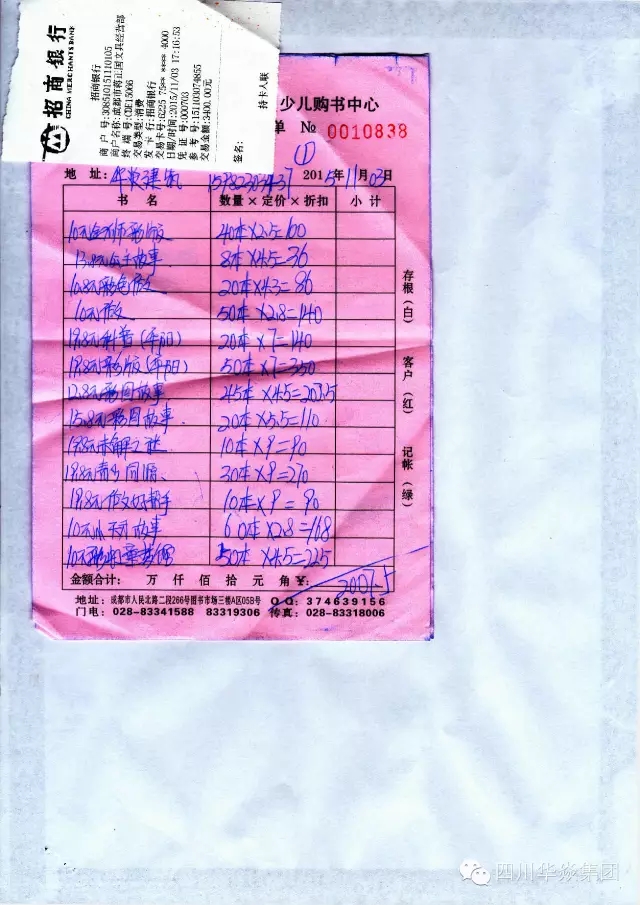 招商银行
CHINA MERCHANTS BANK
招商银行
商 户 号:308510151110105
商户名称:成都市蒋正国文具经营部
终 端 号:CDE15066
交易类型:消费
发 卡 行:招商银行
交易卡号:6225 75** **** 4000
日期/时间:2015/11/03 17:16:53
凭 证 号:000703
参 考 号:151103074855
交易金额:3400.00元
签名:
持卡人联
少儿购书中心
单 № 0010838
①
地 址: 2015年11月03日
书 名 数量×定价×折扣 小 计
40本×2.5=100
8本×4.5=36
20本×4.3=86
10元作文 50本×2.8=140
19.8元科普 20本×7=140
50本×7=350
12.8元彩图故事 45本×4.5=203.5
15.8元彩图故事 20本×5.5=110
19.8元未解之谜 10本×9=90
30本×9=270
19.8元作文好帮手 10本×9=90
60本×2.8=168
50本×4.5=225
金额合计: 万 仟 佰 拾 元 角 ¥: 2007.5
地址:成都市人民北路二段266号图书市场三楼A区05B号 QQ:374639156
门电:028-83341588 83319306 传真:028-83318006
存根(白)
客户(红)
记帐(绿)
四川华焱集团